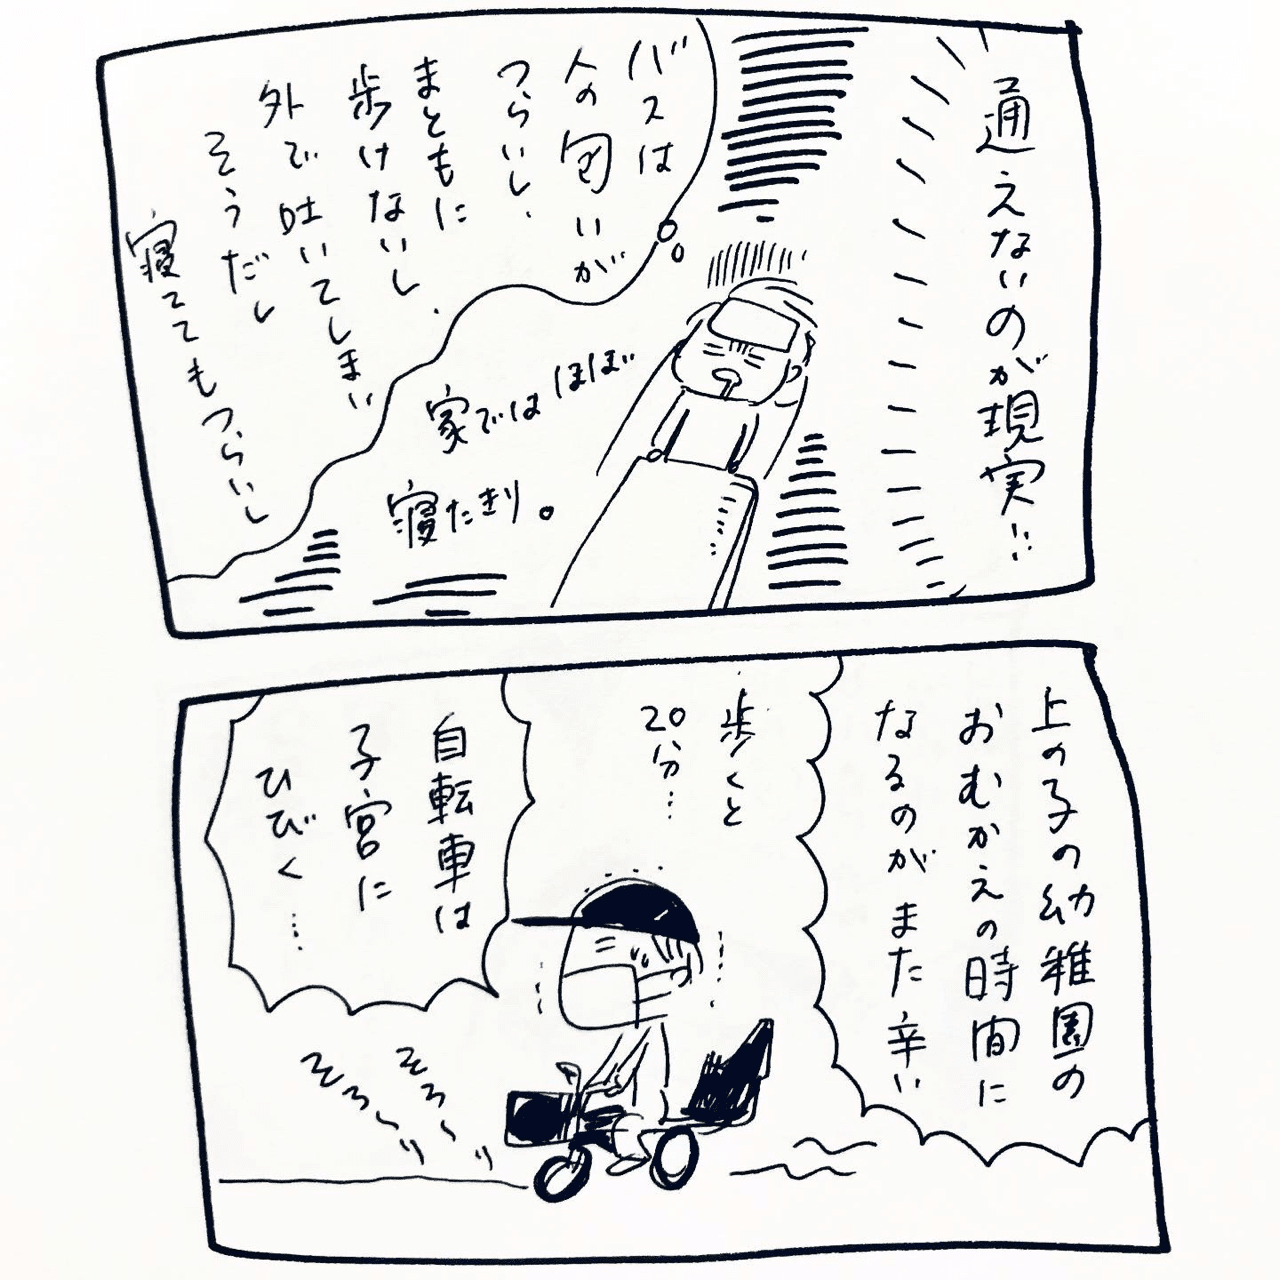 通えないのが現実…
バスは
人の匂いが
つらいし、
まともに
歩けないし、
外で吐いてしまい
そうだし
寝ててもつらいし
家ではほぼ
寝たきり。
上の子の幼稚園の
おむかえの時間に
なるのがまた辛い
歩くと
20分…
自転車は
子宮に
ひびく…
そろ〜り
そろ〜り